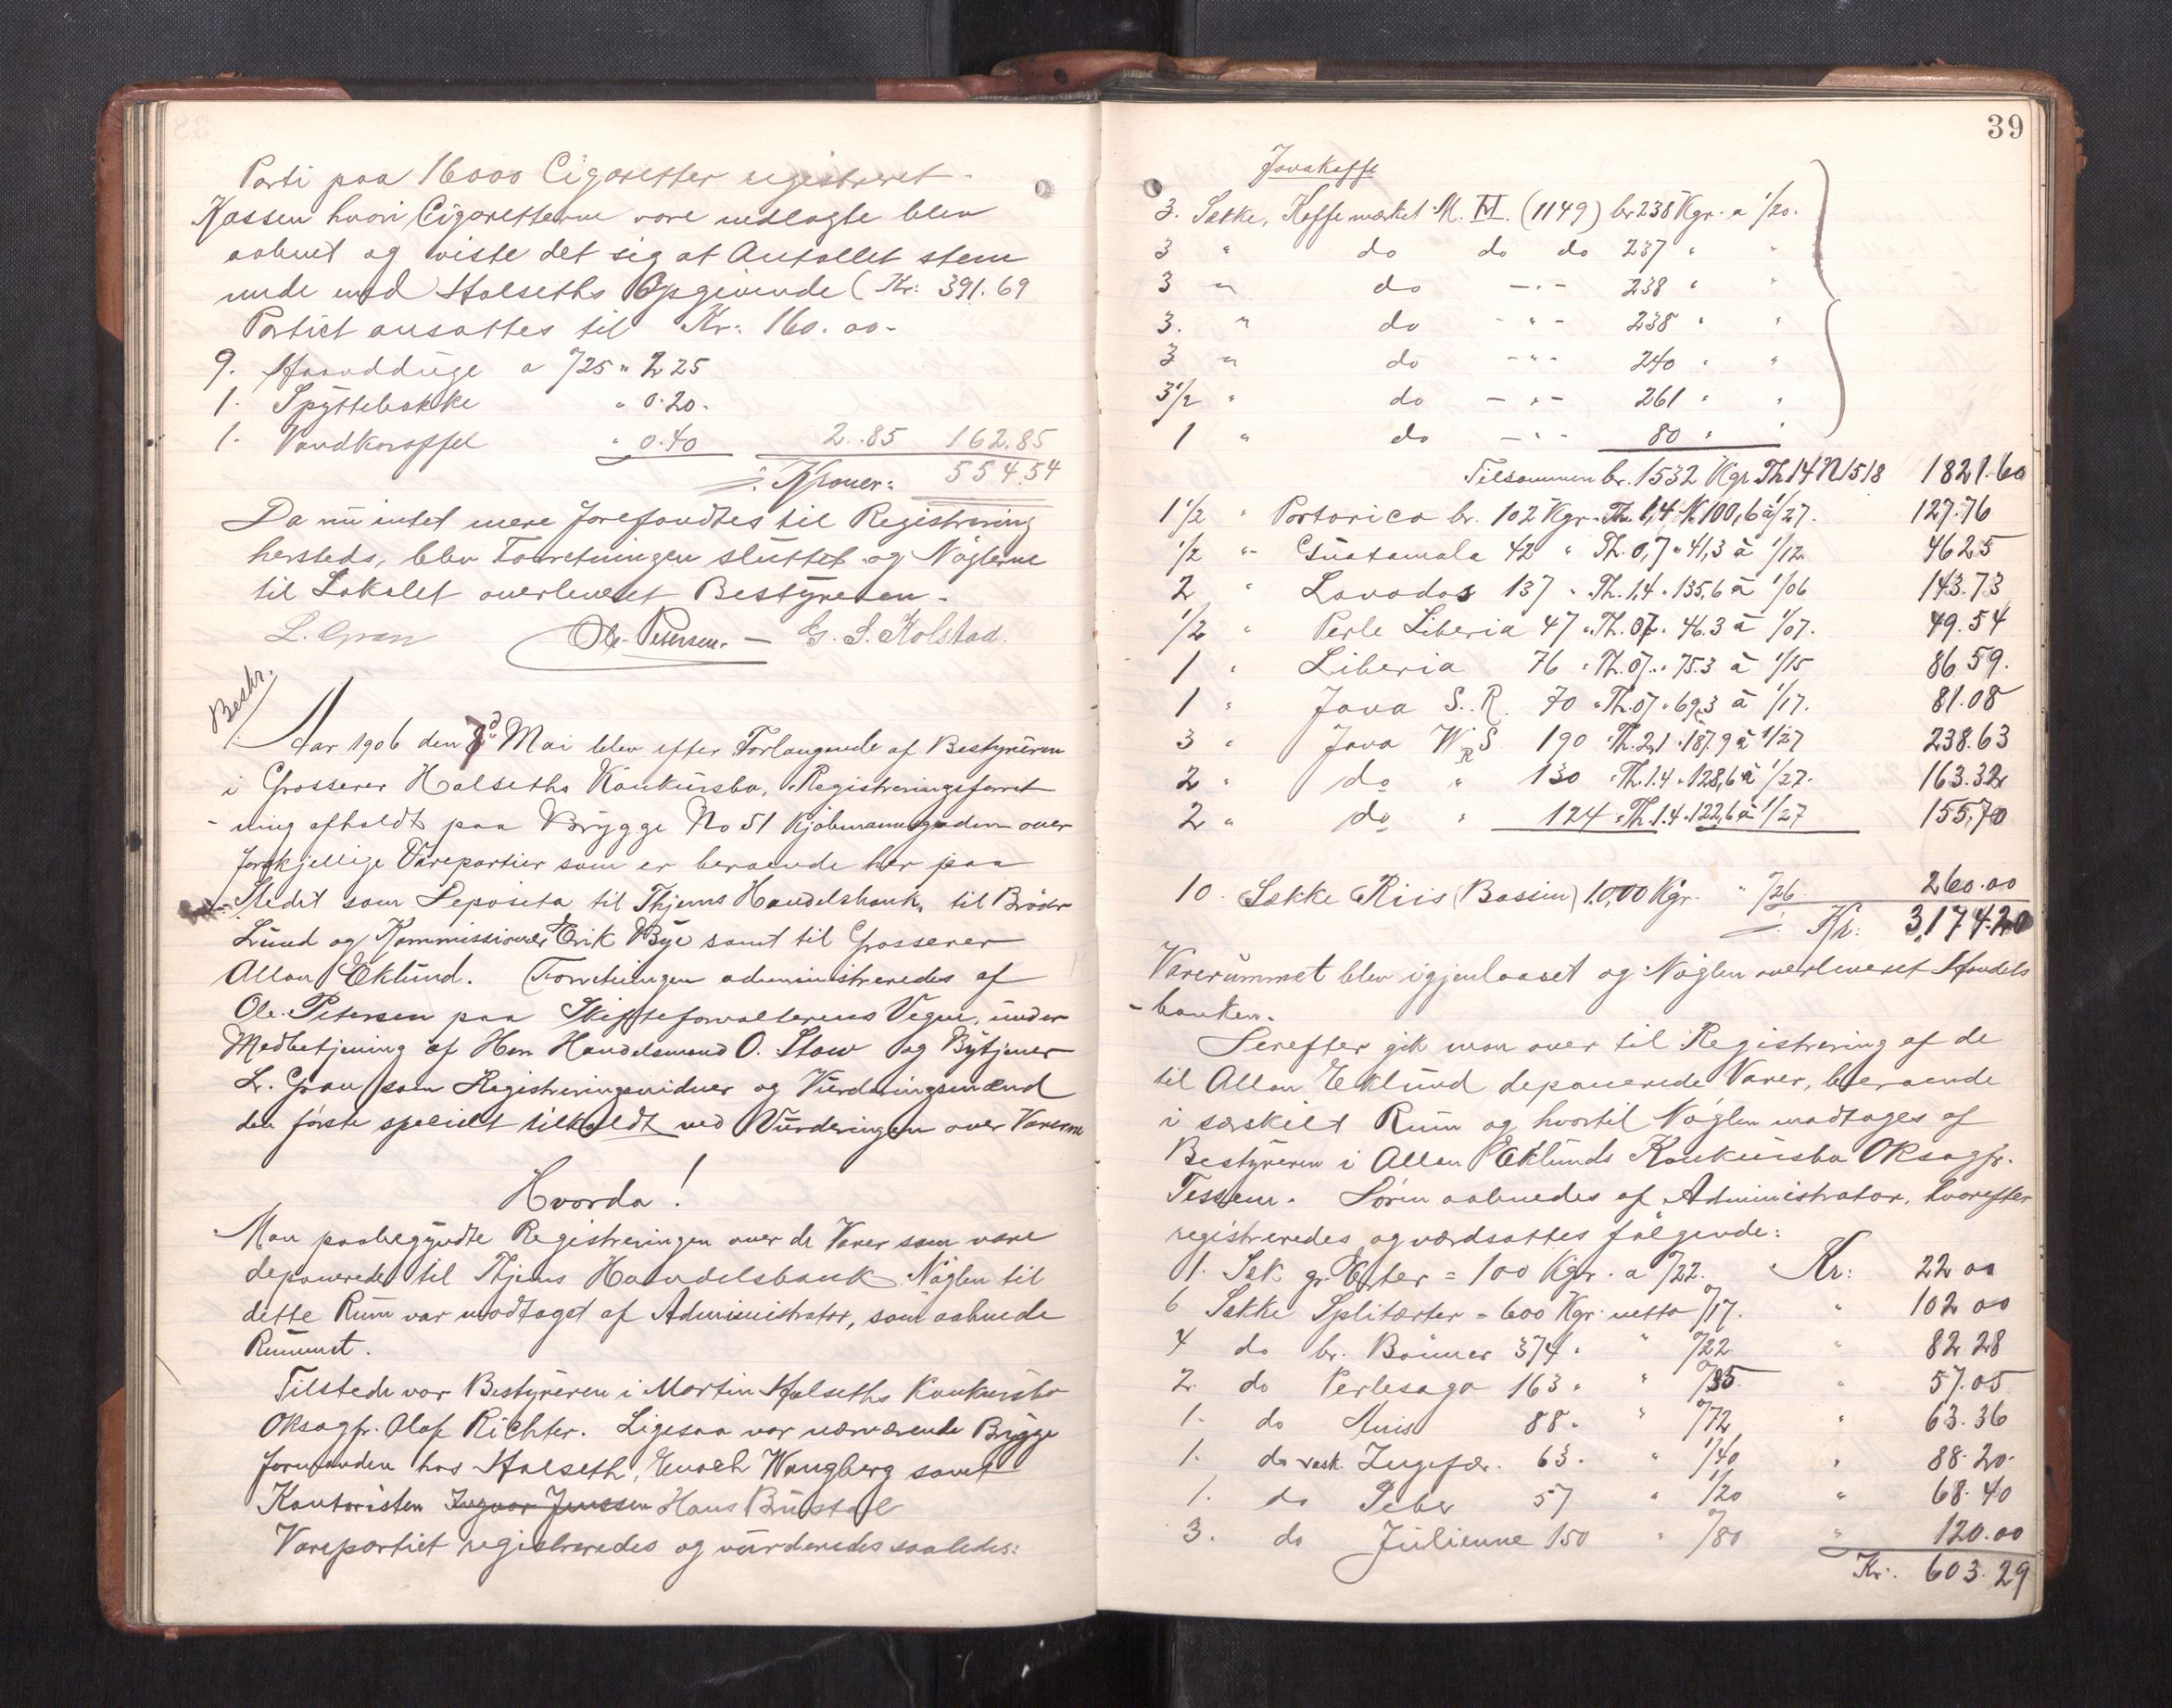 Parti paa 16000 Cigaretter registreret.
Kassen hvori Cigaretterne vare indlagte blev
aabnet og viste det sig at Antallet stem
mede med Halseths Opgivende (Kr: 391.69
Partiet ansattes til Kr: 160.00-
9. Haandduge a /25 " 2 25
1. Spyttebakke " 0.20.
1. Vandkaraffel " 0.40 2.85 162.85
Kroner: 554.54
Da nu intet mere forefandtes til Registrering
hersteds, blev Forretningen sluttet og Nøglerne
til Lokalet overleveret Bestyreren.
L. Gran Ole Petersen. — G. S. Kolstad.
Beskr.
Aar 1906 den Mai blev efter Forlangende af Bestyreren
i Grosserer Halseths Konkursbo, Registreringsforret
ning afholdt paa Brygge No 51 Kjøbmannsgaden over
forskjellige Varepartier som er beroende her paa
Stedet som Deposita til Thjems Handelsbank, til Brødr
Lund og Kommissionær Erik Bye samt til Grosserer
Allan Eklund. Forretningen administreredes af
Ole Petersen paa Skifteforvalterens Vegne, under
Medbetjening af Herr Handelsmand O. Stow og Bytjener
L. Gran som Registreringsvidner og Vurderingsmænd
den første specielt tilkaldt ved Vurderingen over Varerne
Hvorda!
Man paabegyndte Registreringen over de Varer som vare
deponerede til Thjems Handelsbank. Nøglen til
dette Rum var modtaget af Administrator, som aabnede
Rummet.
Tilstede var Bestyreren i Martin Halseths Konkursbo
Oksagfr. Olaf Richter. Ligesaa var nærværende Brygge
formanden hos Halseth, Enoch Wangberg samt
Kontoristen Ingvar Jenssen Hans Brustad
Varepartiet registreredes og vurderedes saaledes:
39
Javakaffe
3. Sække, Kaffe mærket M. (1149) br 238 Kgr. a 1/20.
3 " do do do 237 " "
3 " do - " - 238 " "
3. " do - " - 238 " "
3 " do - " - 240 " "
3 1/2 " do - " - 261 " "
1 " do - " - 80 " "
Tilsammen br. 1532 Kgr Th 14 N 1518 1821.60
1 1/2 " Portorico br. 102 Kgr Th. 1,4 N 100,6 à 1/27. 127.76
1/2 " Guatamala 42 " Th. 0,7 " 41,3 à 1/12. 46 25
2 " Lavados 137 " Th. 1.4 " 135,6 à 1/06 143.73
1/2 " Perle Liberia 47 " Th. 07 " 46.3 à 1/07. 49.54
1 " Liberia 76 " Th. 07 " 75.3 à 1/15 86 59.
1 " Java S. R. 70 " Th. 07 " 69,3 à 1/17. 81.08
3 " Java W. R S 190 " Th. 2,1 " 187.9 à 1/27 238.63
2 " do " 130 " Th. 1.4 " 128,6 à 1/27. 163.32
2 " do " 124 " Th. 1.4 " 122,6 à 1/27 155,70
10. Sække Riis (Bassin) 1000 Kgr. " /26 260.00
Kr: 3,174.20
Varerummet blev igjenlaaset og Nøglen overleveret Handels
-banken.
Derefter gik man over til Registrering af de
til Allan Eklund deponerede Varer, beroende
i særskilt Rum og hvortil Nøglen modtages af
Bestyreren i Allan Eklunds Konkursbo Oksagfr.
Tessem. Døren aabnedes af Administrator, hvorefter
registreredes og værdsattes følgende:
1. Sæk gr. Erter = 100 Kgr. a /22. Kr: 22 00
6 Sække Splitærter = 600 Kgr. netto /17. " 102 00
4 do br. Bønner 374 " " /22 " 82 28
2. do Perlesago 163 " " /35 " 57.05
1. do Anis 88 " " /72 " 63.36
1. do vask. Ingefær. 63 " " 1/40 " 88.20.
1. do Peber 57 " 1/20 " 68.40
3. do Julienne 150 " /80 " 120.00
Kr. 603.29